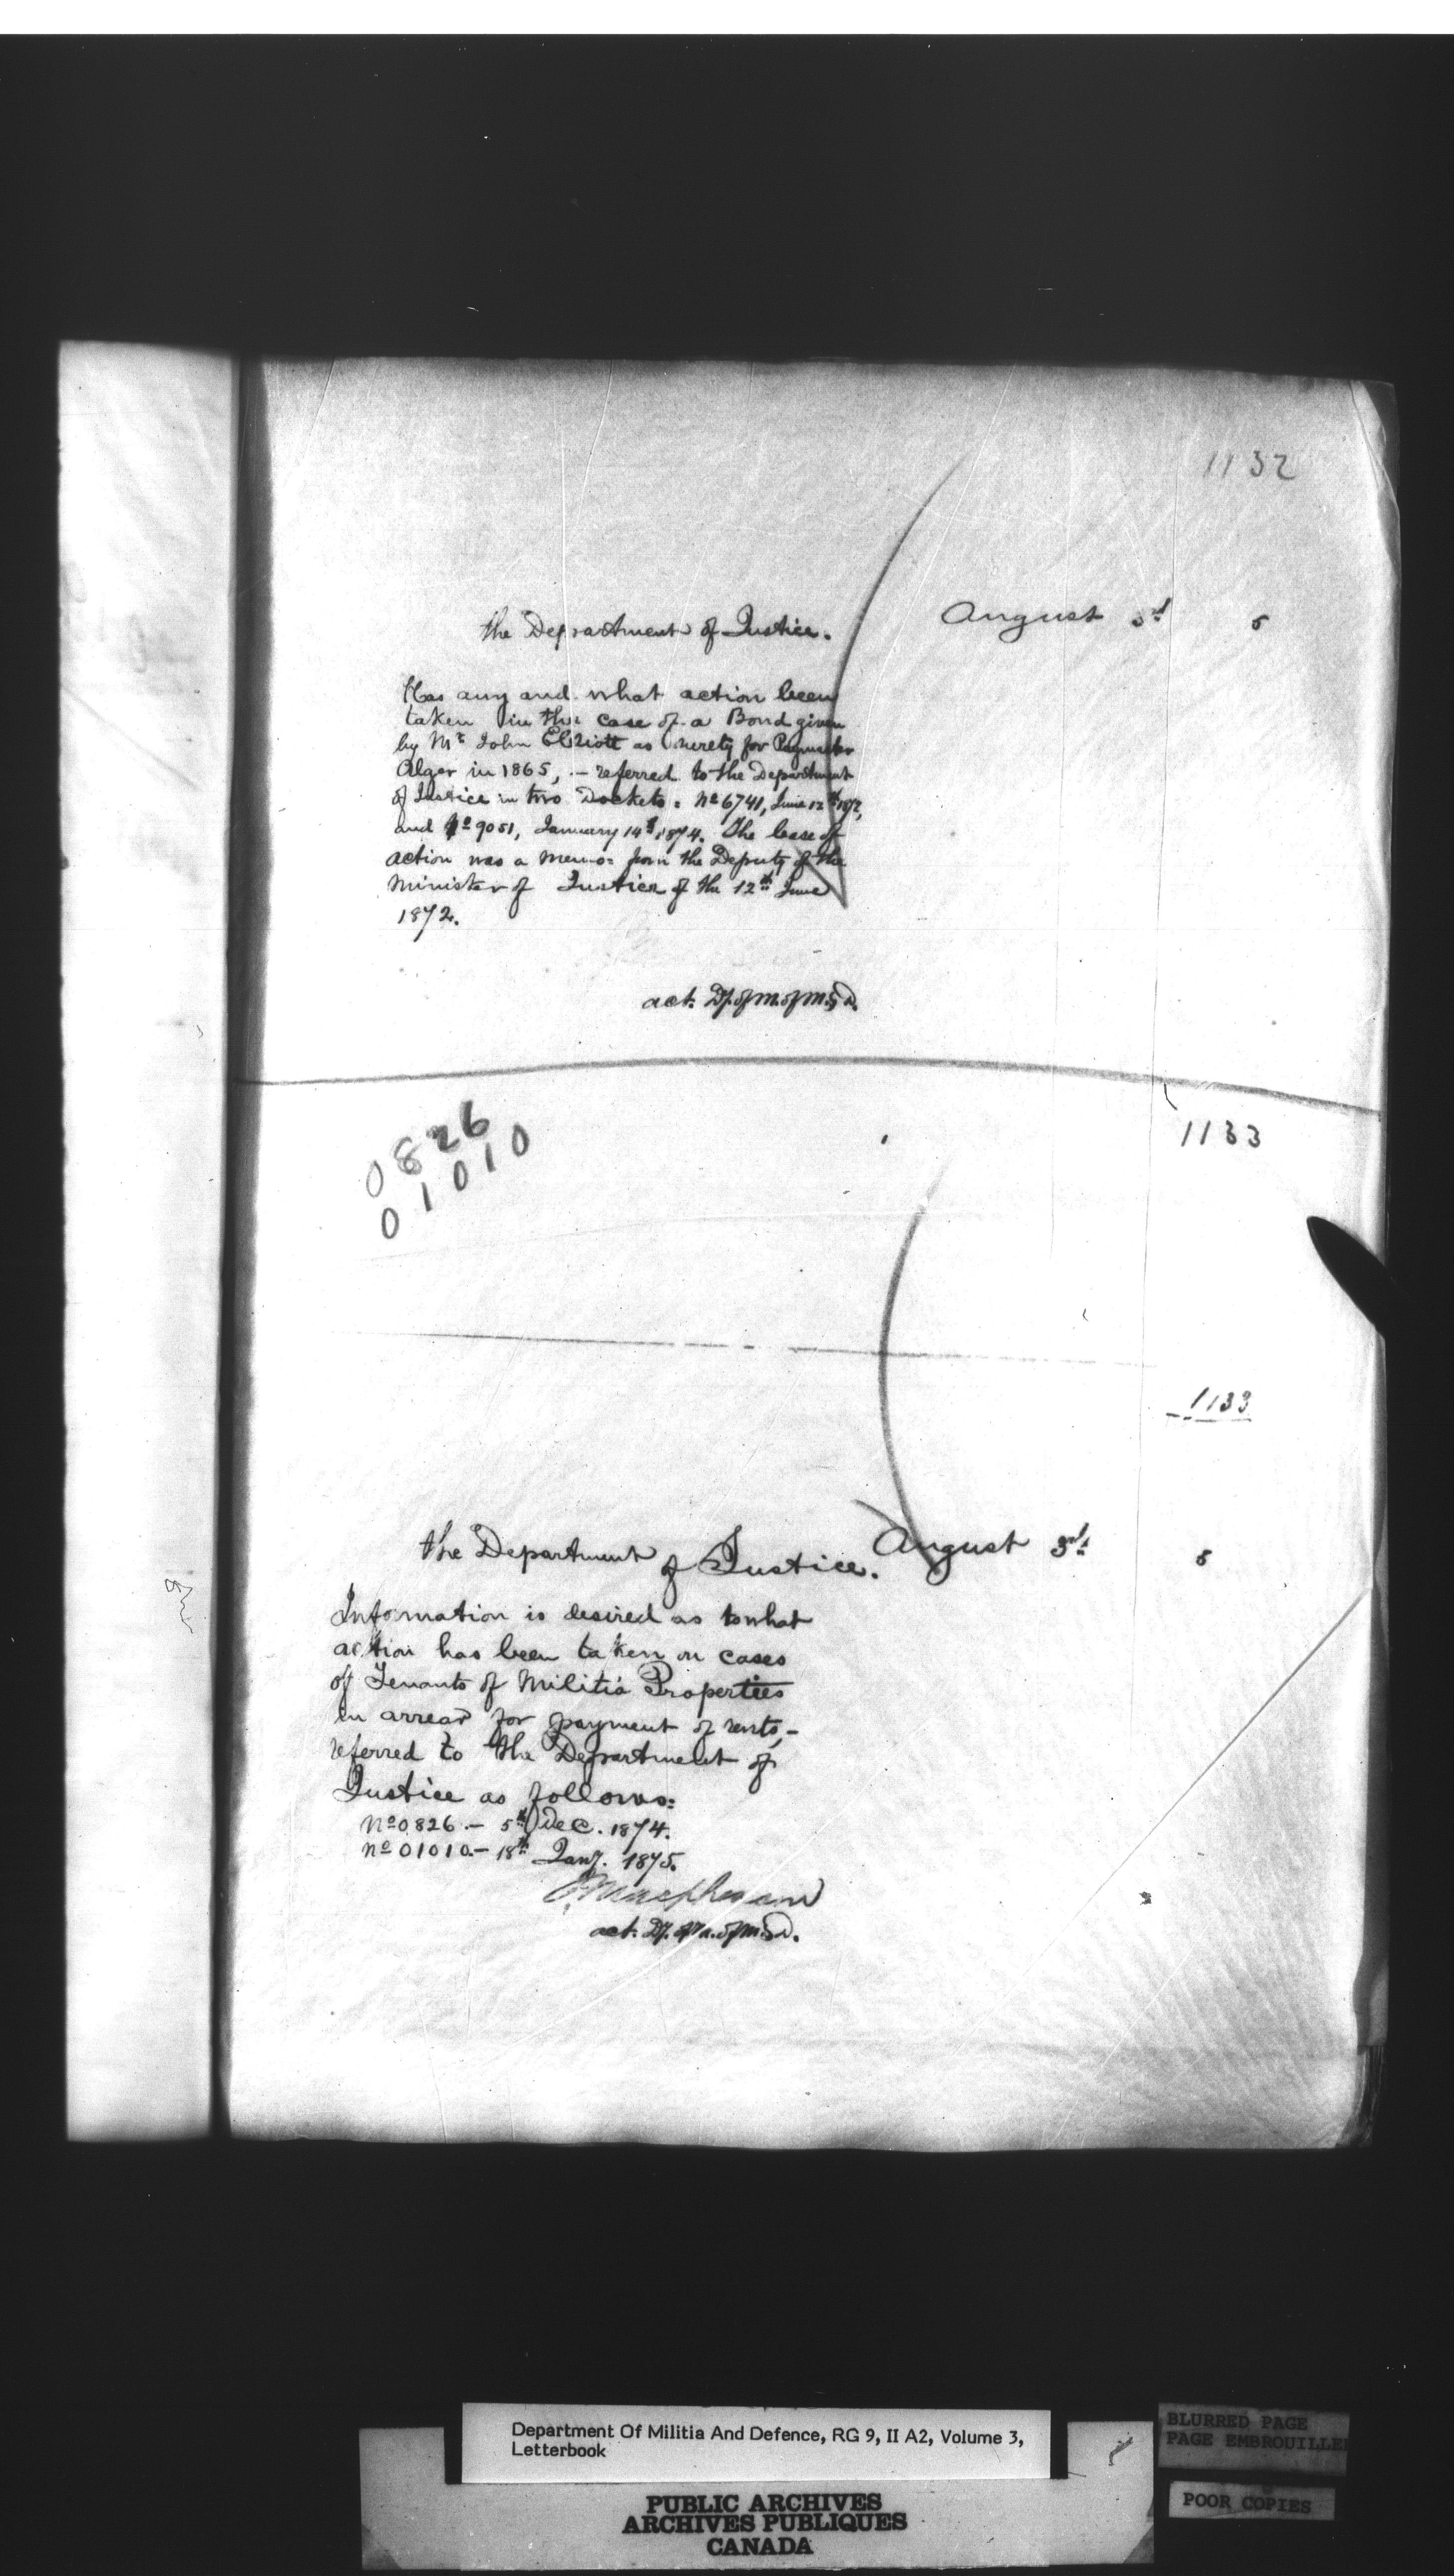 1132
the Department of Justice.
August 3d 5
Has any and what action been
taken in the case of a Bond given
by Mr John Elliott as surety for Paymaster
Alger in 1865, - referred to the Department
of Justice in two Dockets: No 6741, June 12th 1872,
and No 9051, January 14th 1874. The base of
action was a memo: from the Deputy of the
Minister of Justice of the 12th June
1872.
act. Dy. of M. of M. & D.
0826
01010
1133
1133
the Department of Justice.
August 3d 5
Information is desired as to what
action has been taken on cases
of Tenants of Militia Properties
in arrear for payment of rents,-
referred to the Department of
Justice as follows:
No 0826 - 5th Dec. 1874.
No 01010 - 18th Jany. 1875.
Macpherson
act. Dy. of M. of M. & D.
Department Of Militia And Defence, RG 9, II A2, Volume 3,
Letterbook
BLURRED PAGE
PAGE EMBROUILLEE
POOR COPIES
PUBLIC ARCHIVES
ARCHIVES PUBLIQUES
CANADA